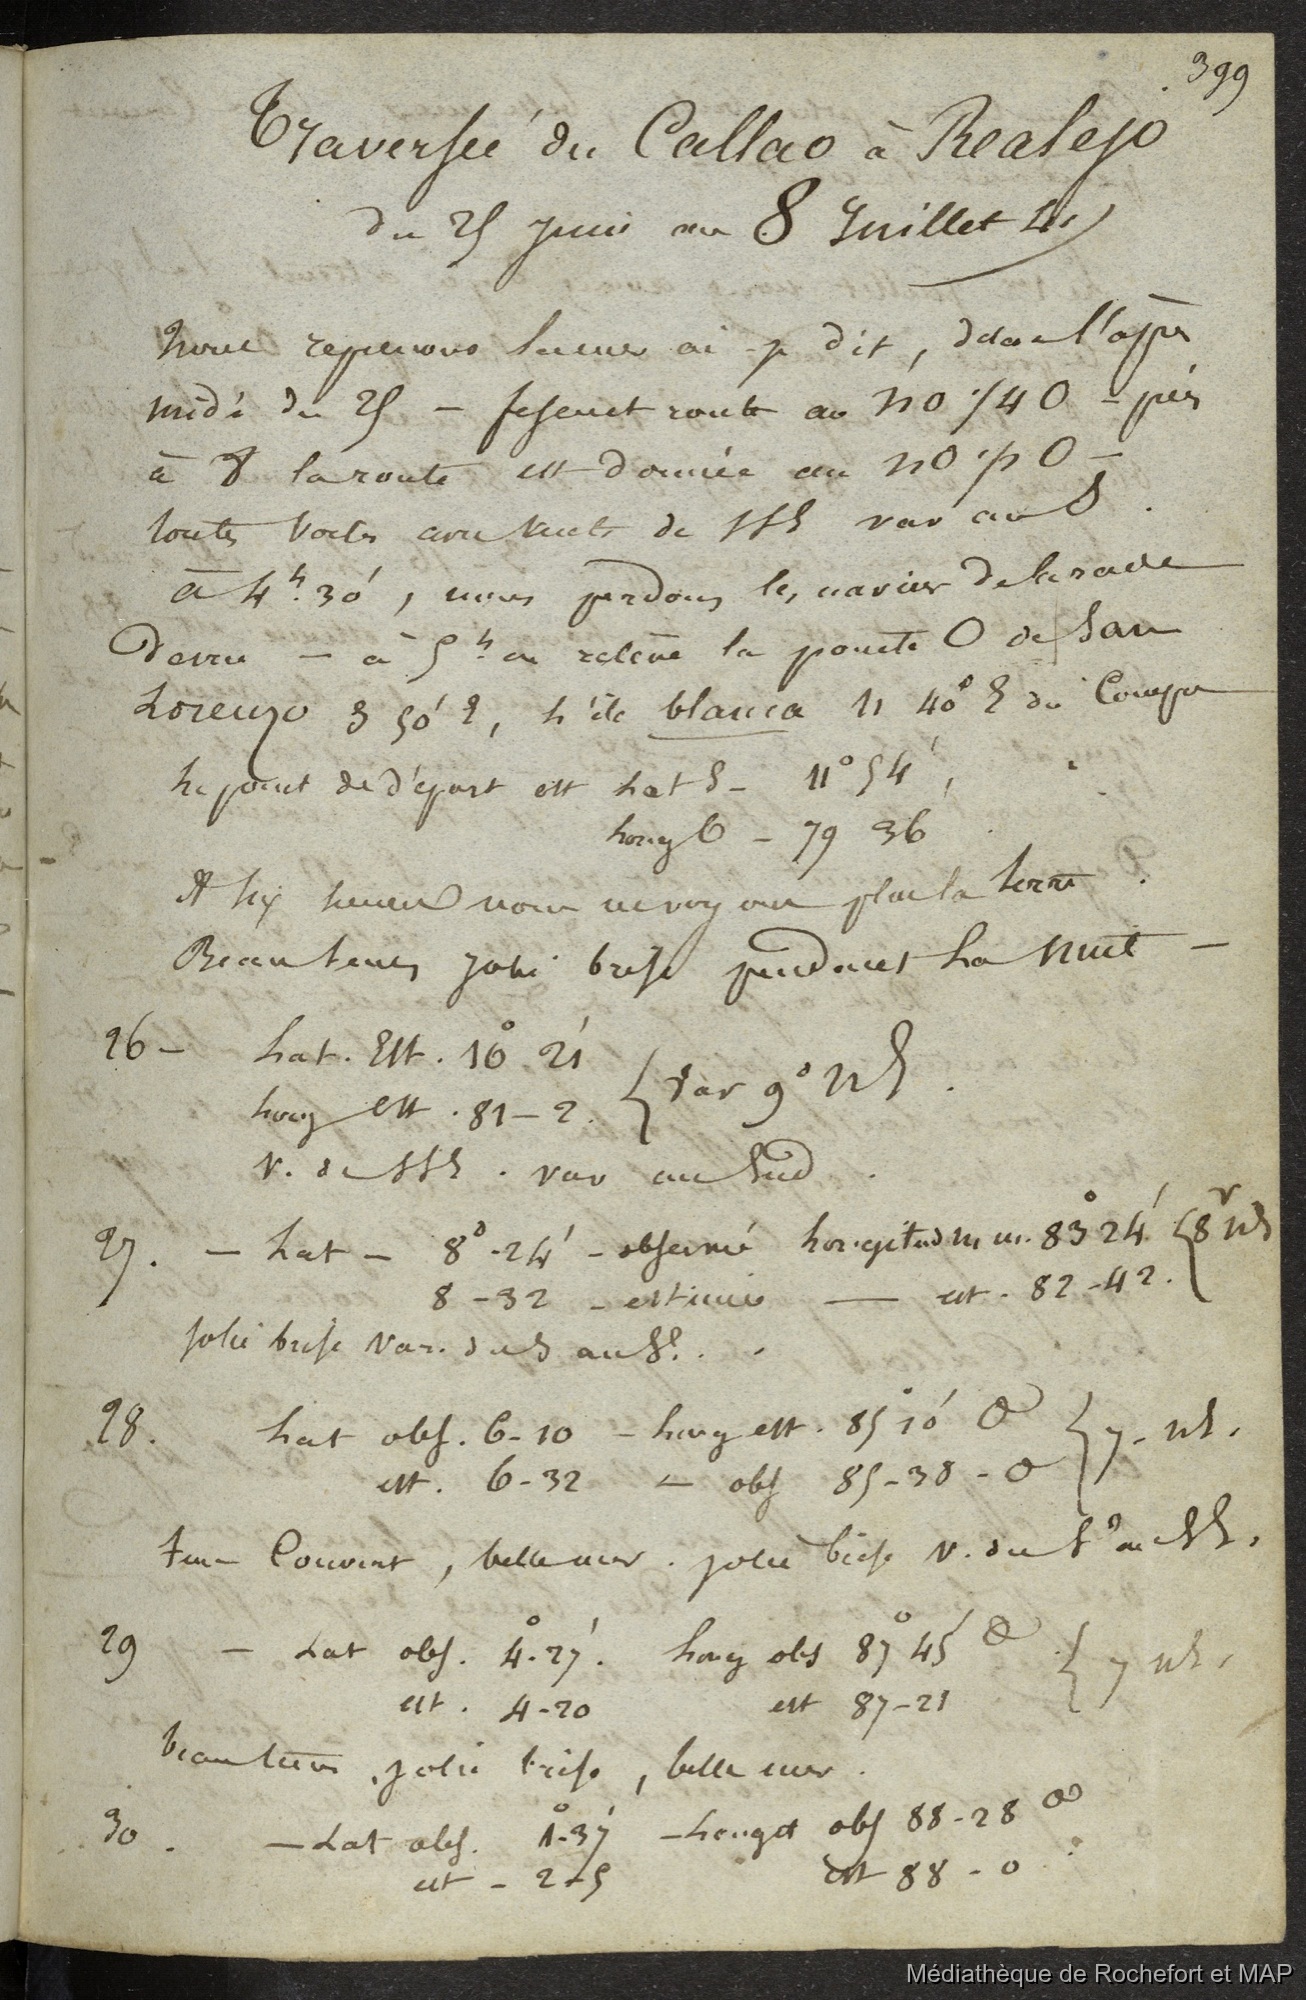 399
Traversée du Callao à Realejo
du 25 juin au 8 Juillet 4.
nous reprenons la mer ai-je dit, dans l'après
midi du 25 — fesant route au NO ¼ O — puis
à 8 la route est donnée au NO ¼ O —
toutes voiles avec vents de SSE var au S.
à 4h.30', nous perdons les navires de la rade
de vue — à 5h on relève la pointe O de San
Lorenzo S 50° E, l'île blanca N 40° E du Compas
le point de départ est Lat S — 11° 54',
Long O — 79 36
A six heures nous ne voyons plus la terre.
Beau tems jolie brise pendant la nuit —
26 — Lat. Est. 10° 21'
Long Est. 81 — 2. { Var 9° NE.
V. de SSE. var au Sud.
27. — Lat — 8° - 24' — observée Longitud m. 83° 24' { 8 NE
8 — 32 — estimée — est. 82 - 42.
jolie brise var. du S au SE.
28. Lat obs. 6 - 10 — Long est. 85° 10' O { 7 - NE.
est. 6 - 32 — obs 85 - 38 - O
Tems Couvert, belle mer. jolie brise v. du Sd au SE.
29 — Lat obs. 4° - 27'. Long obs 87° 45' O { 7 NE.
est. 4 - 20 est 87 - 21
beau tems, jolie brise, belle mer.
30. — Lat obs. 1° - 37' — Longit obs 88 - 28 O
est — 2 - 5 est 88 - 0
Médiathèque de Rochefort et MAP